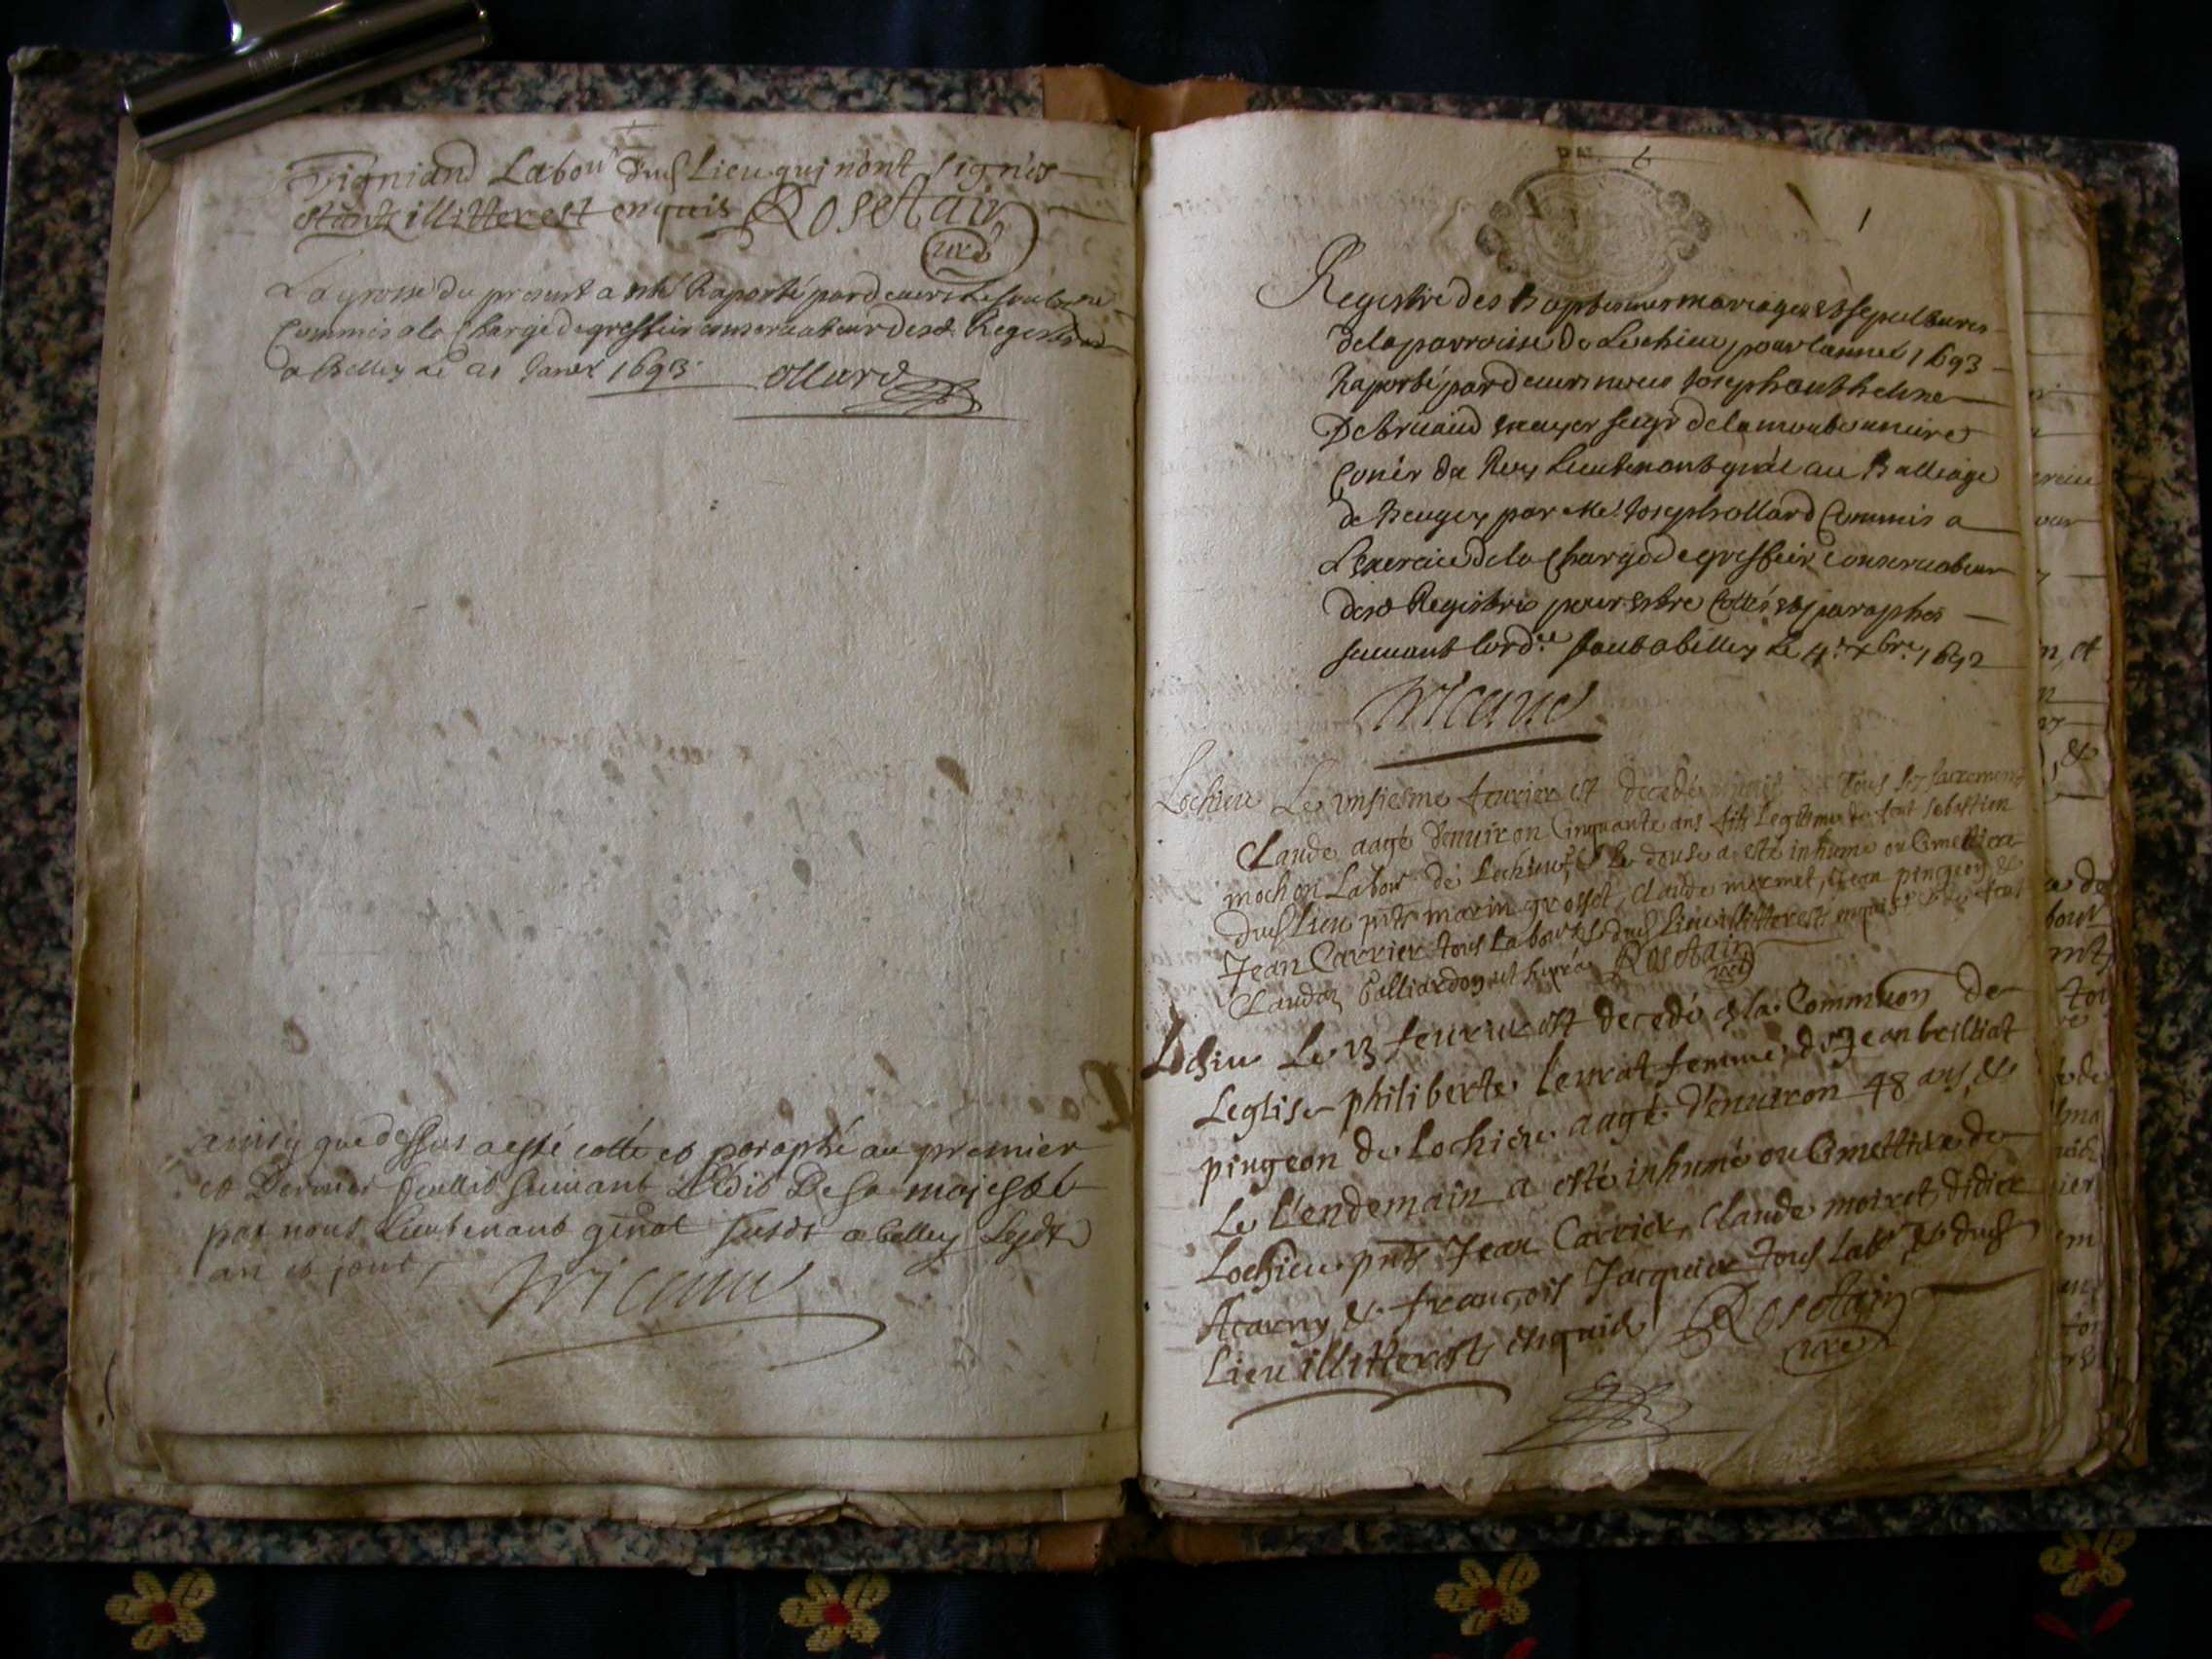 Vigniand Labour dud Lieu qui n'ont signés
estants illitterest enquis Rostain
curé
La grosse du present a esté Raporté pardevers le soubsne
Commis a la Charge de greffier conservateur desd. Registres
a Belley ce 21 Janer 1693. Ollard
ainsy que dessus a esté cotté et paraphé au premier
et Dernier feuillit suivant L'Edit De Sa majesté
par nous Lieutenant genal susdt a belley Lesdt
an et jour,
1
Registre des Baptesmes mariages et sepultures
de la parroisse de Lochieu pour l'année 1693
Raporté pardevers nous Joseph Anthelme
Escuyer seigr de la
Coner du Roy Lieutenant gnâl au Balliage
de Beugey par Me Joseph Ollard Commis a
L'exercice de la Charge de greffier conservateur
desd Registres pour estre Cottés et paraphes
suivant lord.ce fait a belley le 4.e xbre. 1692
Lochieu Le unsiesme fevrier est decedé tous les sacrements
Claude aagé d'environ Cinquante ans fils Legitime de feut Sebastien
mochon Labour de Lochieu, & le douse a esté inhumé au Cimettiere
dud Lieu pnts marin grosset, Claude mermet, Jean pingeon &
Jean Carrier tous Labours dud Lieu illitterest enquis
Claudaz Rostain
curé
Lochieu Le 13 fevrier est decedé à la Communon de
Leglise philiberte Levrat femme de Jean beilliat
pingeon de Lochieu aagé d'environ 48 ans, &
Le L'endemain a esté inhumé au Cimettiere de
Lochieu pnts Jean Carrier, Claude moiret, didier
Acarny & françois Jacquier tous Labrs dud
Lieu illitterest, enquis Rostain
curé